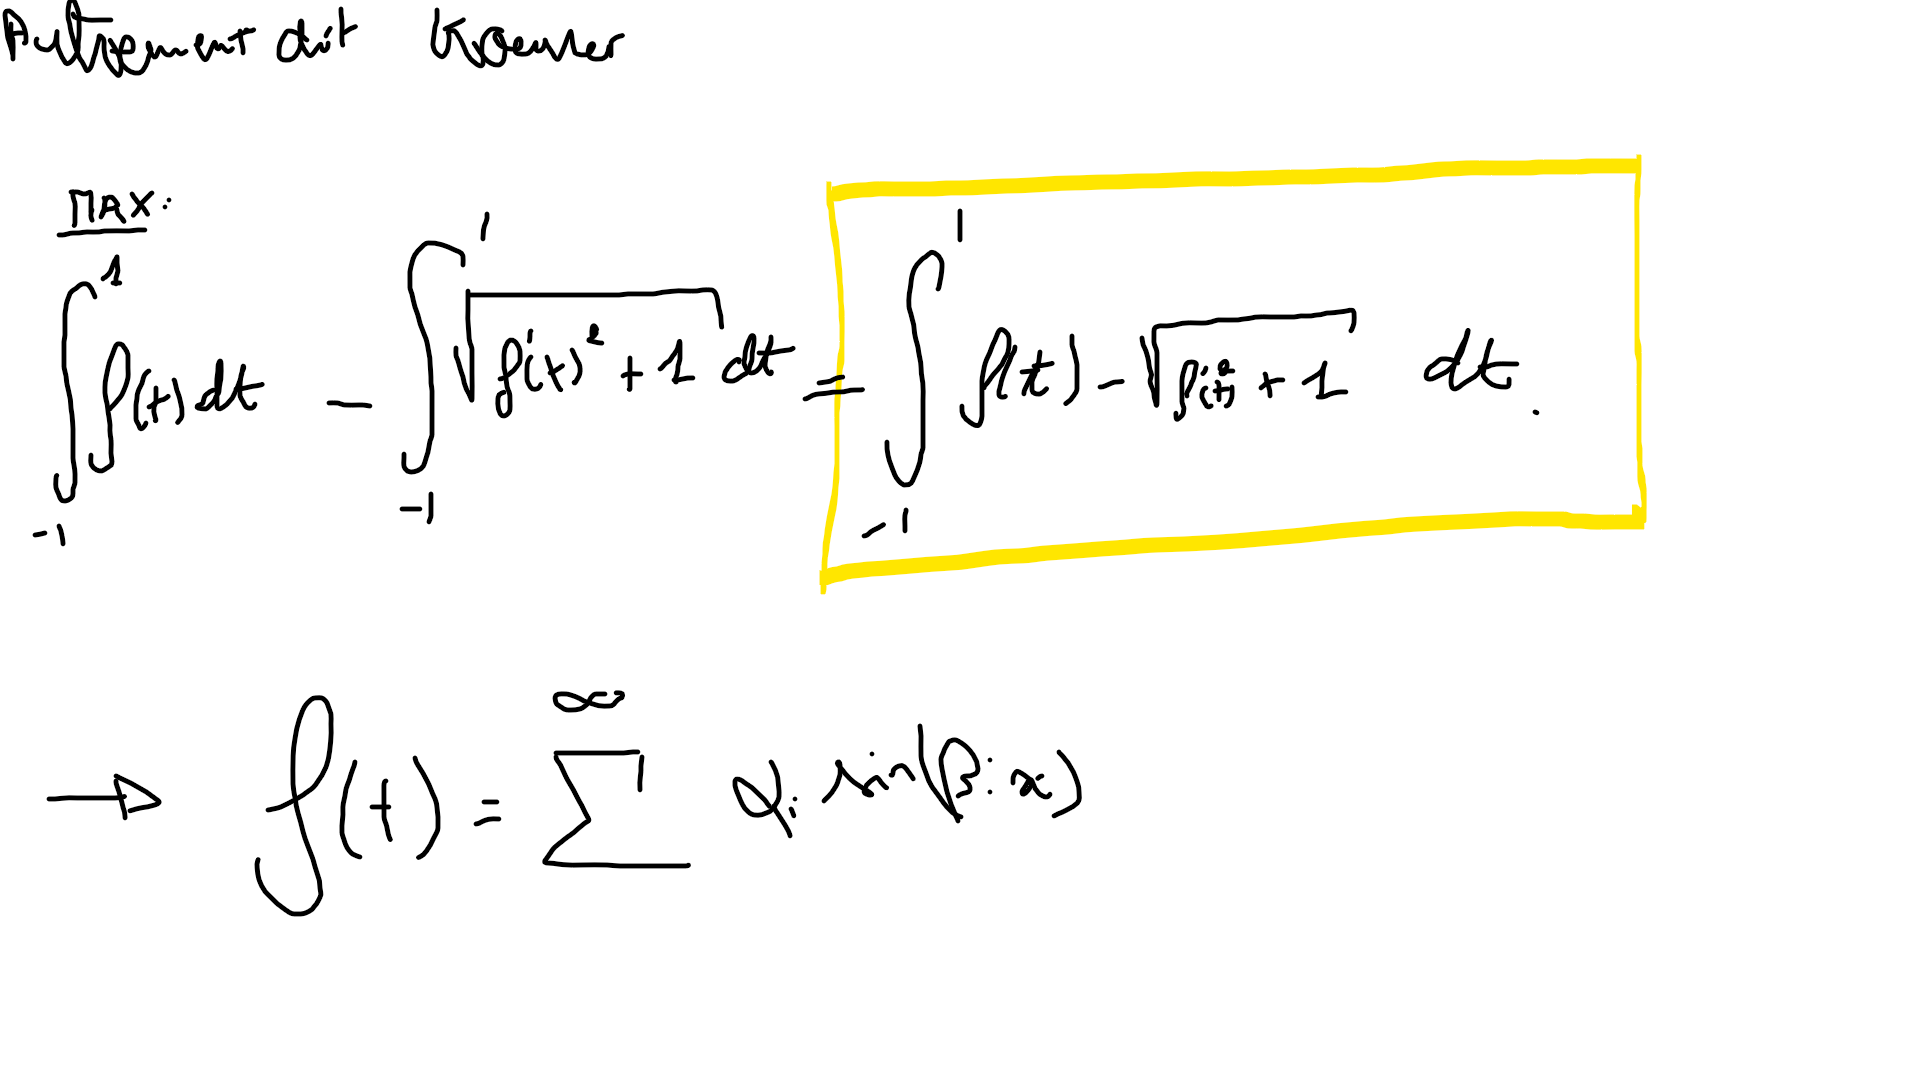 Autrement dit trouver
MAX:
∫_{-1}^{1} f(t) dt - ∫_{-1}^{1} √(f'(t)² + 1) dt = ∫_{-1}^{1} f(t) - √(f'(t)² + 1) dt.
→ f(t) = ∑^{∞} α_i sin(β_i x)